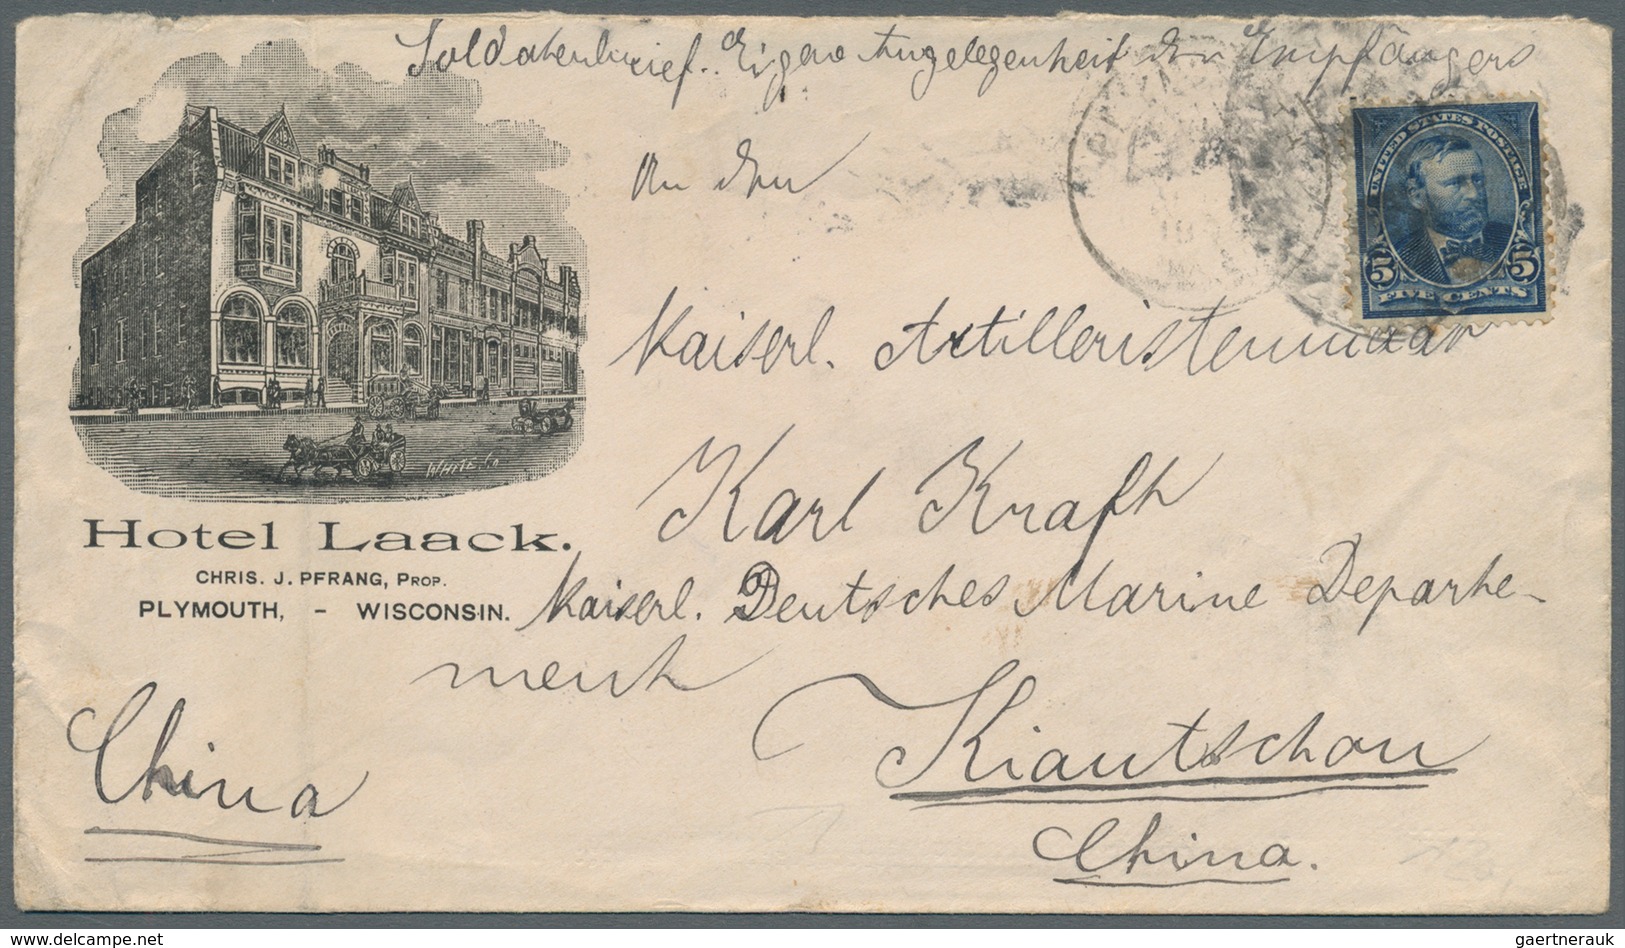 Soldatenbrief. Eigene Angelegenheit des Empfängers
An den
UNITED STATES POSTAGE
5 5
FIVE CENTS
Kaiserl. Artilleristenmaar
Karl Kraft
WHITE CO
Hotel Laack.
CHRIS. J. PFRANG, PROP.
PLYMOUTH, - WISCONSIN.
Kaiserl. Deutsches Marine Departe-
ment
Kiautschou
China
China.
delcampe.net
gaertnerauk